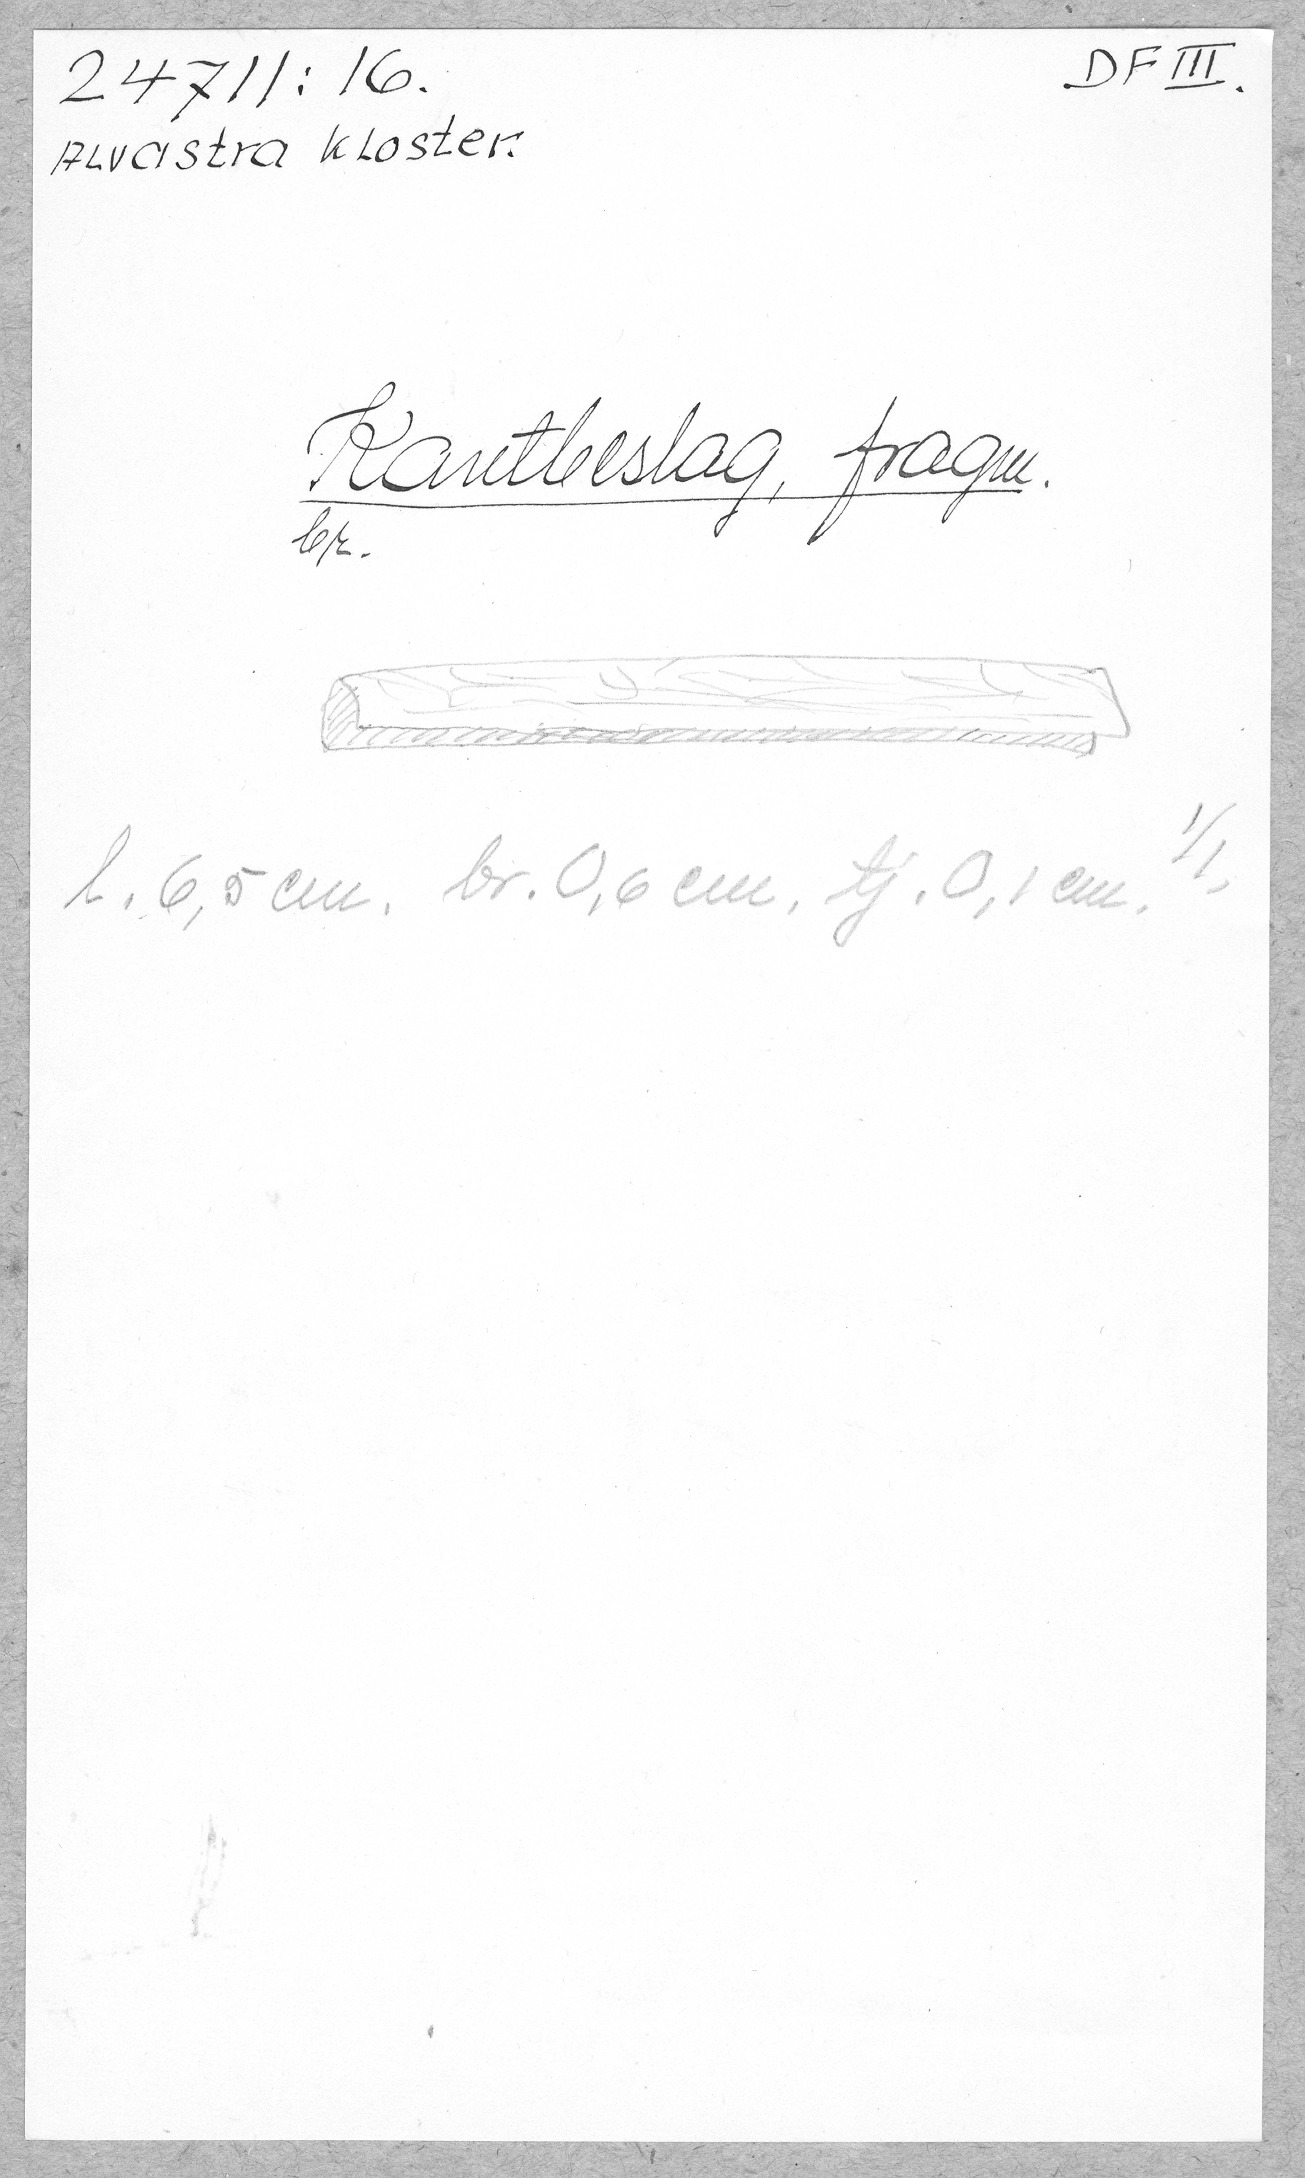 24711:16.
DF III.
Alvastra kloster.
Kantbeslag, fragm.
br.
l. 6,5 cm. br. 0,6 cm. tj. 0,1 cm. 1/1.